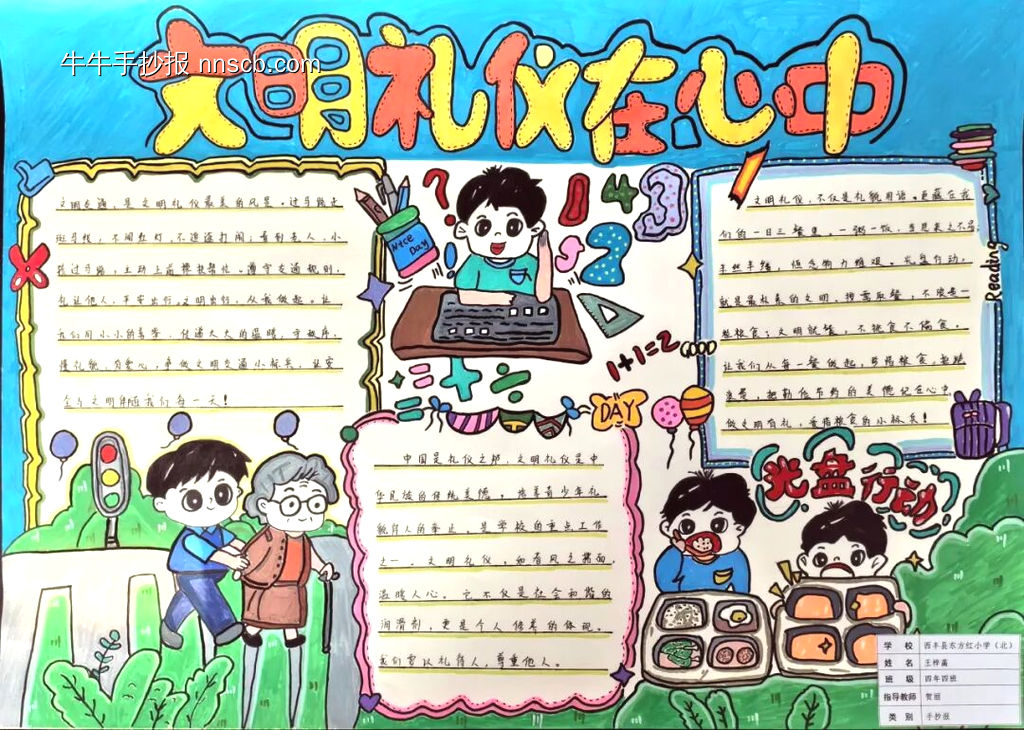 牛牛手抄报 nnscb.com
文明礼仪在心中
文明交通,是文明礼仪最美的风景。过马路走
斑马线,不闯红灯,不追逐打闹;看到老人、小
孩过马路,主动上前搀扶帮忙。遵守交通规则,
礼让他人,平安出行,文明出行,从我做起。让
我们用小小的善举,传递大大的温暖,守秩序、
懂礼貌,有爱心,争做文明交通小标兵,让安
全与文明伴随我们每一天!
Nice
Day
?
!
0 4 3
5 2
1+1=2
= + ÷
DAY
文明礼仪,不仅是礼貌用语。更藏在我
们的一日三餐里。一粥一饭,当思来之不易
半丝半缕,恒念物力维艰。光盘行动,
就是最朴素的文明,按需取餐,不浪费一
粒粮食;文明就餐,不挑食不偏食。
让我们从每一餐做起,珍惜粮食,拒绝
浪费,把勤俭节约的美德记在心里
做文明有礼,爱惜粮食的小标兵!
Reading
中国是礼仪之邦,文明礼仪是中
华民族的传统美德。培养青少年礼
貌待人的举止,是学校的重点工作
之一。文明礼仪,如春风之拂面,
温暖人心。它不仅是社会和谐的
润滑剂,更是个人修养的体现。
我们要以礼待人,尊重他人。
光盘行动
学 校 西丰县东方红小学(北)
姓 名 王梓菡
班 级 四年四班
指导教师 贺丽
类 别 手抄报